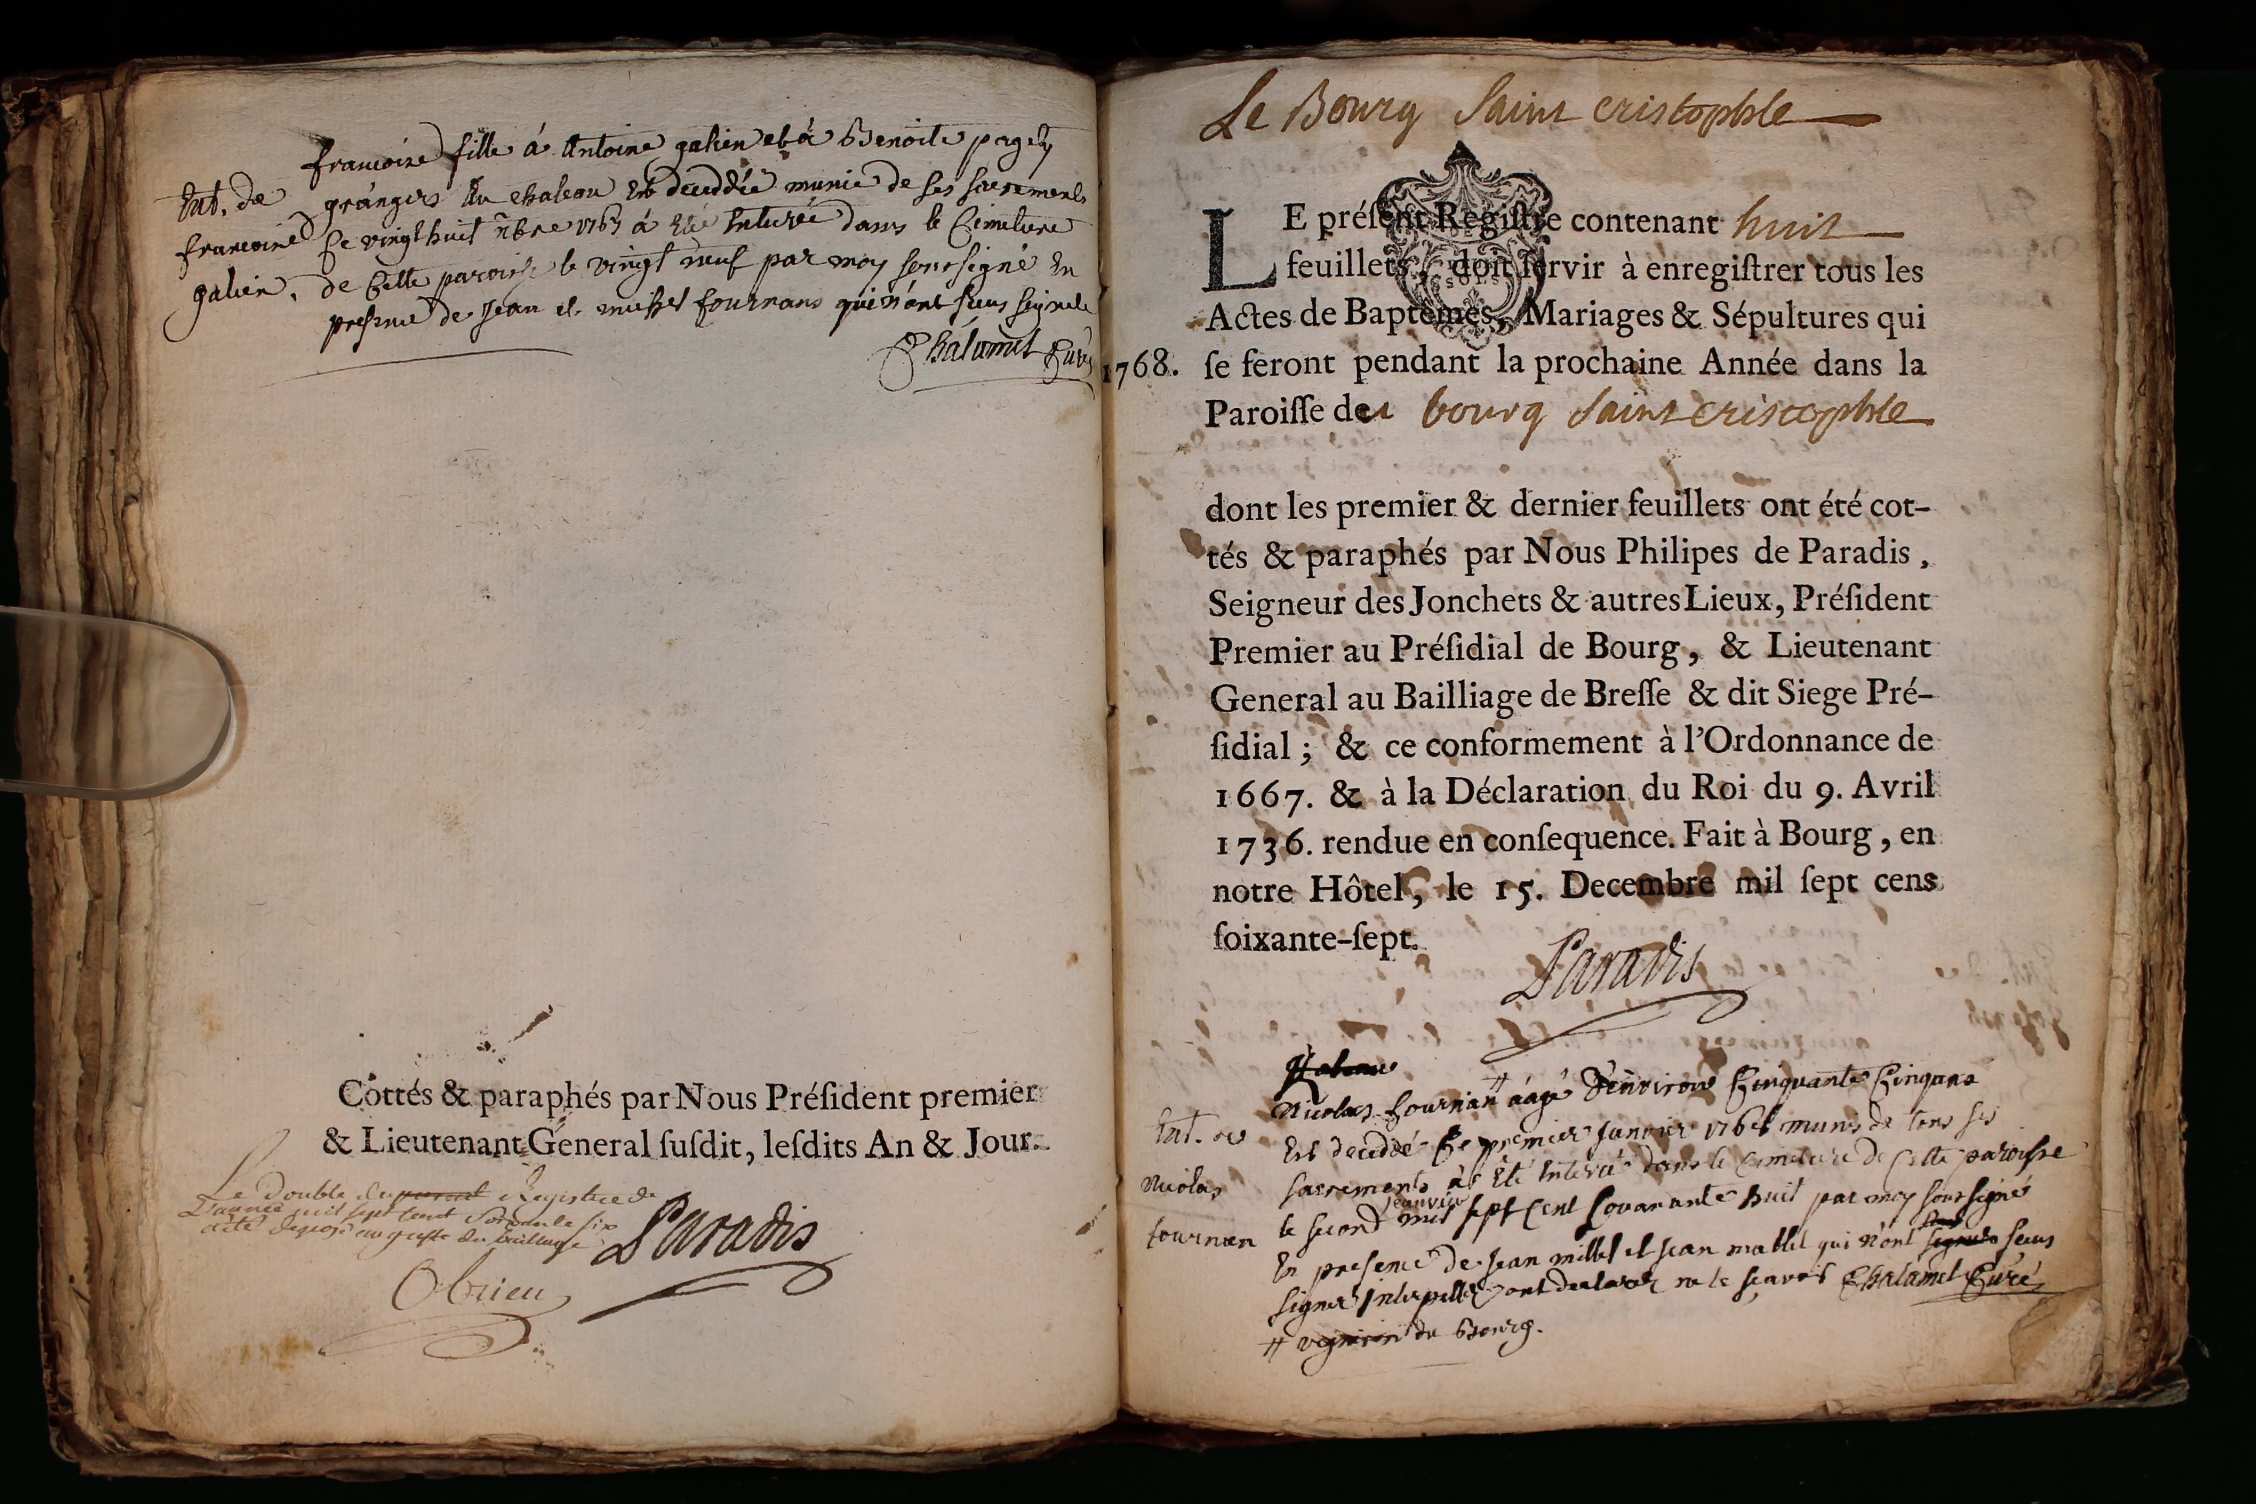 francoise fille á Antoine galien et á Benoite
Ent. de grangers du chateau est deceddée munie de ses sacrements
francoise Ce vingt huit 9bre 1767 á Eté Enterrée dans le Cimetiere
galien. de Cette paroisse le vingt neuf par moy soussigné En
presence de Jean et michel fournans qui n'ont sceus signer
Chalamel Curé
Cottés & paraphés par Nous Préſident premier
& Lieutenant General ſuſdit, leſdits An & Jour.
Le Double du Registre de
L'année mil sept cent Soixante six
acté deposé au greffe du bailliage
Paradis
Le Bourg Saint cristophle
LE préſent Regiſtre contenant huit
feuillets, doit ſervir à enregiſtrer tous les
Actes de Baptêmes, Mariages & Sépultures qui
1768. ſe feront pendant la prochaine Année dans la
Paroiſſe deu bourg Saint cristophle
dont les premier & dernier feuillets ont été cot-
tés & paraphés par Nous Philipes de Paradis,
Seigneur des Jonchets & autres Lieux, Préſident
Premier au Préſidial de Bourg, & Lieutenant
General au Bailliage de Breſſe & dit Siege Pré-
ſidial; & ce conformement à l'Ordonnance de
1667. & à la Déclaration du Roi du 9. Avril
1736. rendue en conſequence. Fait à Bourg, en
notre Hôtel, le 15. Decembre mil ſept cens
ſoixante-ſept.
Paradis
Nicolas fournan # áagé d'environ Cinquante Cinq ans
Ent. de Est deceddé Ce premier Janvier 1768 munis de tous ses
Nicolas sacrements à Eté Enterré dans le Cimetiere de Cette paroisse
le second janvier mil sept Cent soixante huit par moy soussigné
fournan En presence de Jean millet et Jean mallet qui n'ont sceus
signer Interpellés ont declarer ne le scavoir Chalamel Curé
# vigneron du Bourg.